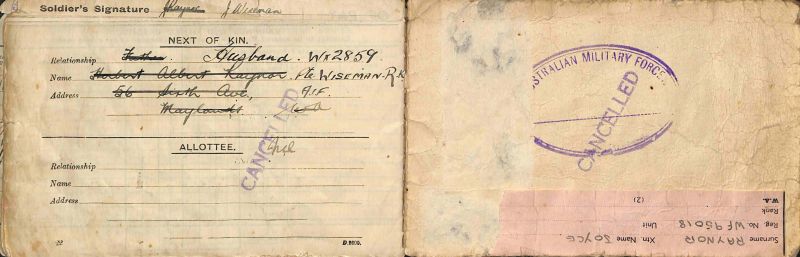 Soldier's Signature J Raynor J Wiseman
NEXT OF KIN.
Relationship Father. Husband. WX2859
Name Herbert Albert Raynor. Pte WISEMAN-R.K
Address 56 Sixth Ave, A.I.F.
Maylands. W A
ALLOTTEE. Nil
Relationship
Name
Address
CANCELLED
22 D.2600.
AUSTRALIAN MILITARY FORCES
CANCELLED
Surname RAYNOR Xtn. Name JOYCE
Reg. No. WF95018 Unit
Rank
W.A. (2)